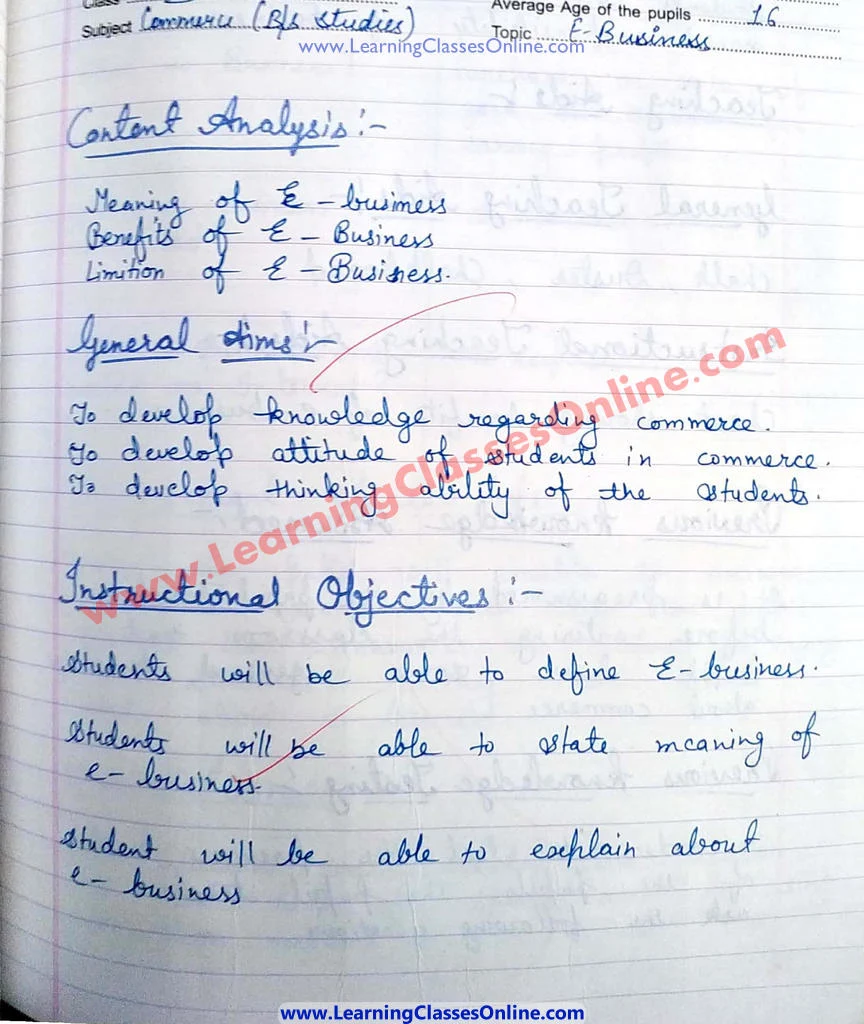 Class
Average Age of the pupils 16
Subject Commerce (B/s Studies)
www.LearningClassesOnline.com
Topic E-Business
Content Analysis :-
Meaning of E-business
Benefits of E-Business
Limition of E-Business.
General Aims :-
www.LearningClassesOnline.com
To develop knowledge regarding commerce.
To develop attitude of students in commerce.
To develop thinking ability of the students.
Instructional Objectives :-
Students will be able to define E-business.
Students will be able to state meaning of
e-business.
Student will be able to explain about
e-business
www.LearningClassesOnline.com